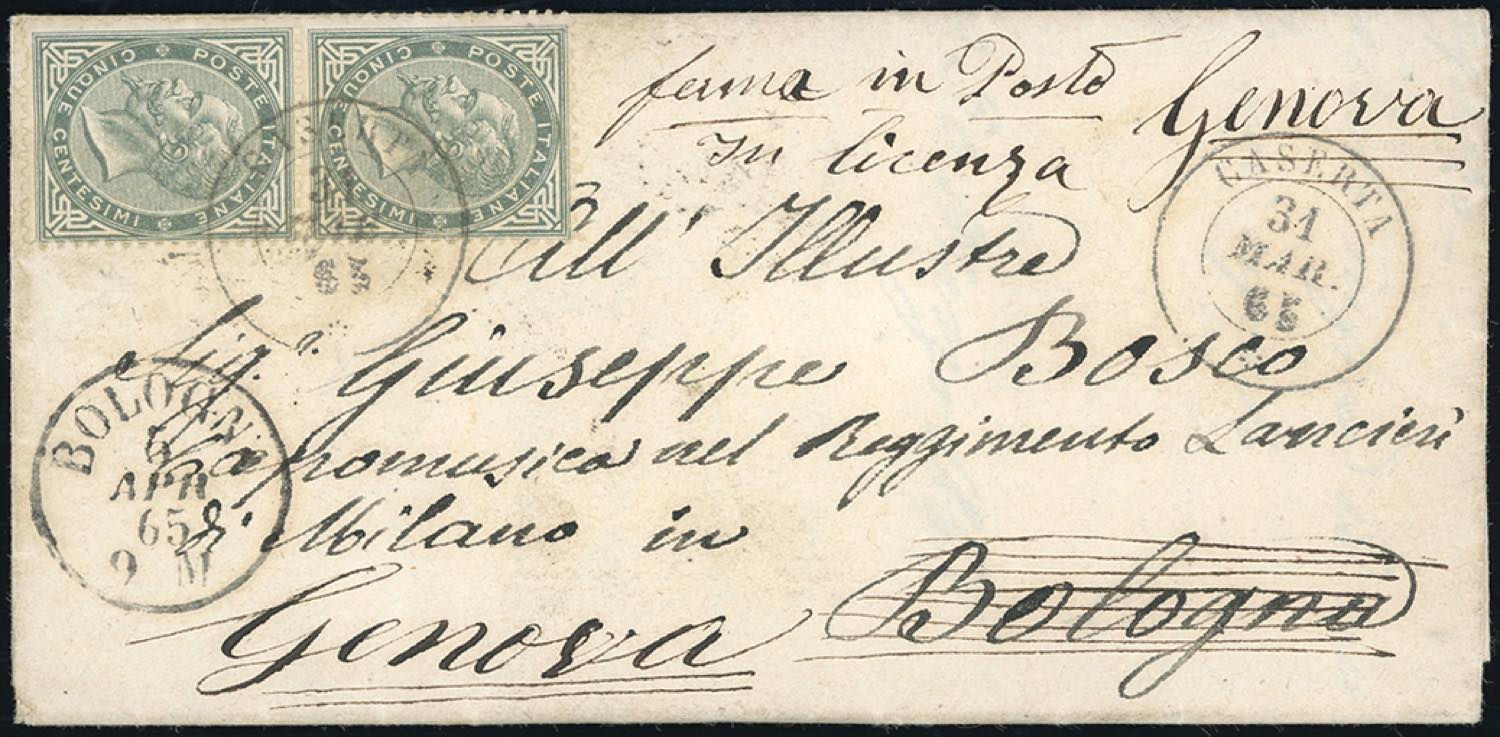 CINQUE CENTESIMI
POSTE ITALIANE
CINQUE CENTESIMI
POSTE ITALIANE
ferma in Posta Genova
In licenza
CASERTA
31
MAR.
65
All' Illustre
Sigr. Giuseppe Bosco
Capomusica nel Reggimento Lancieri
di Milano in
Bologna
Genova
BOLOGNA
6
APR
65
9 M